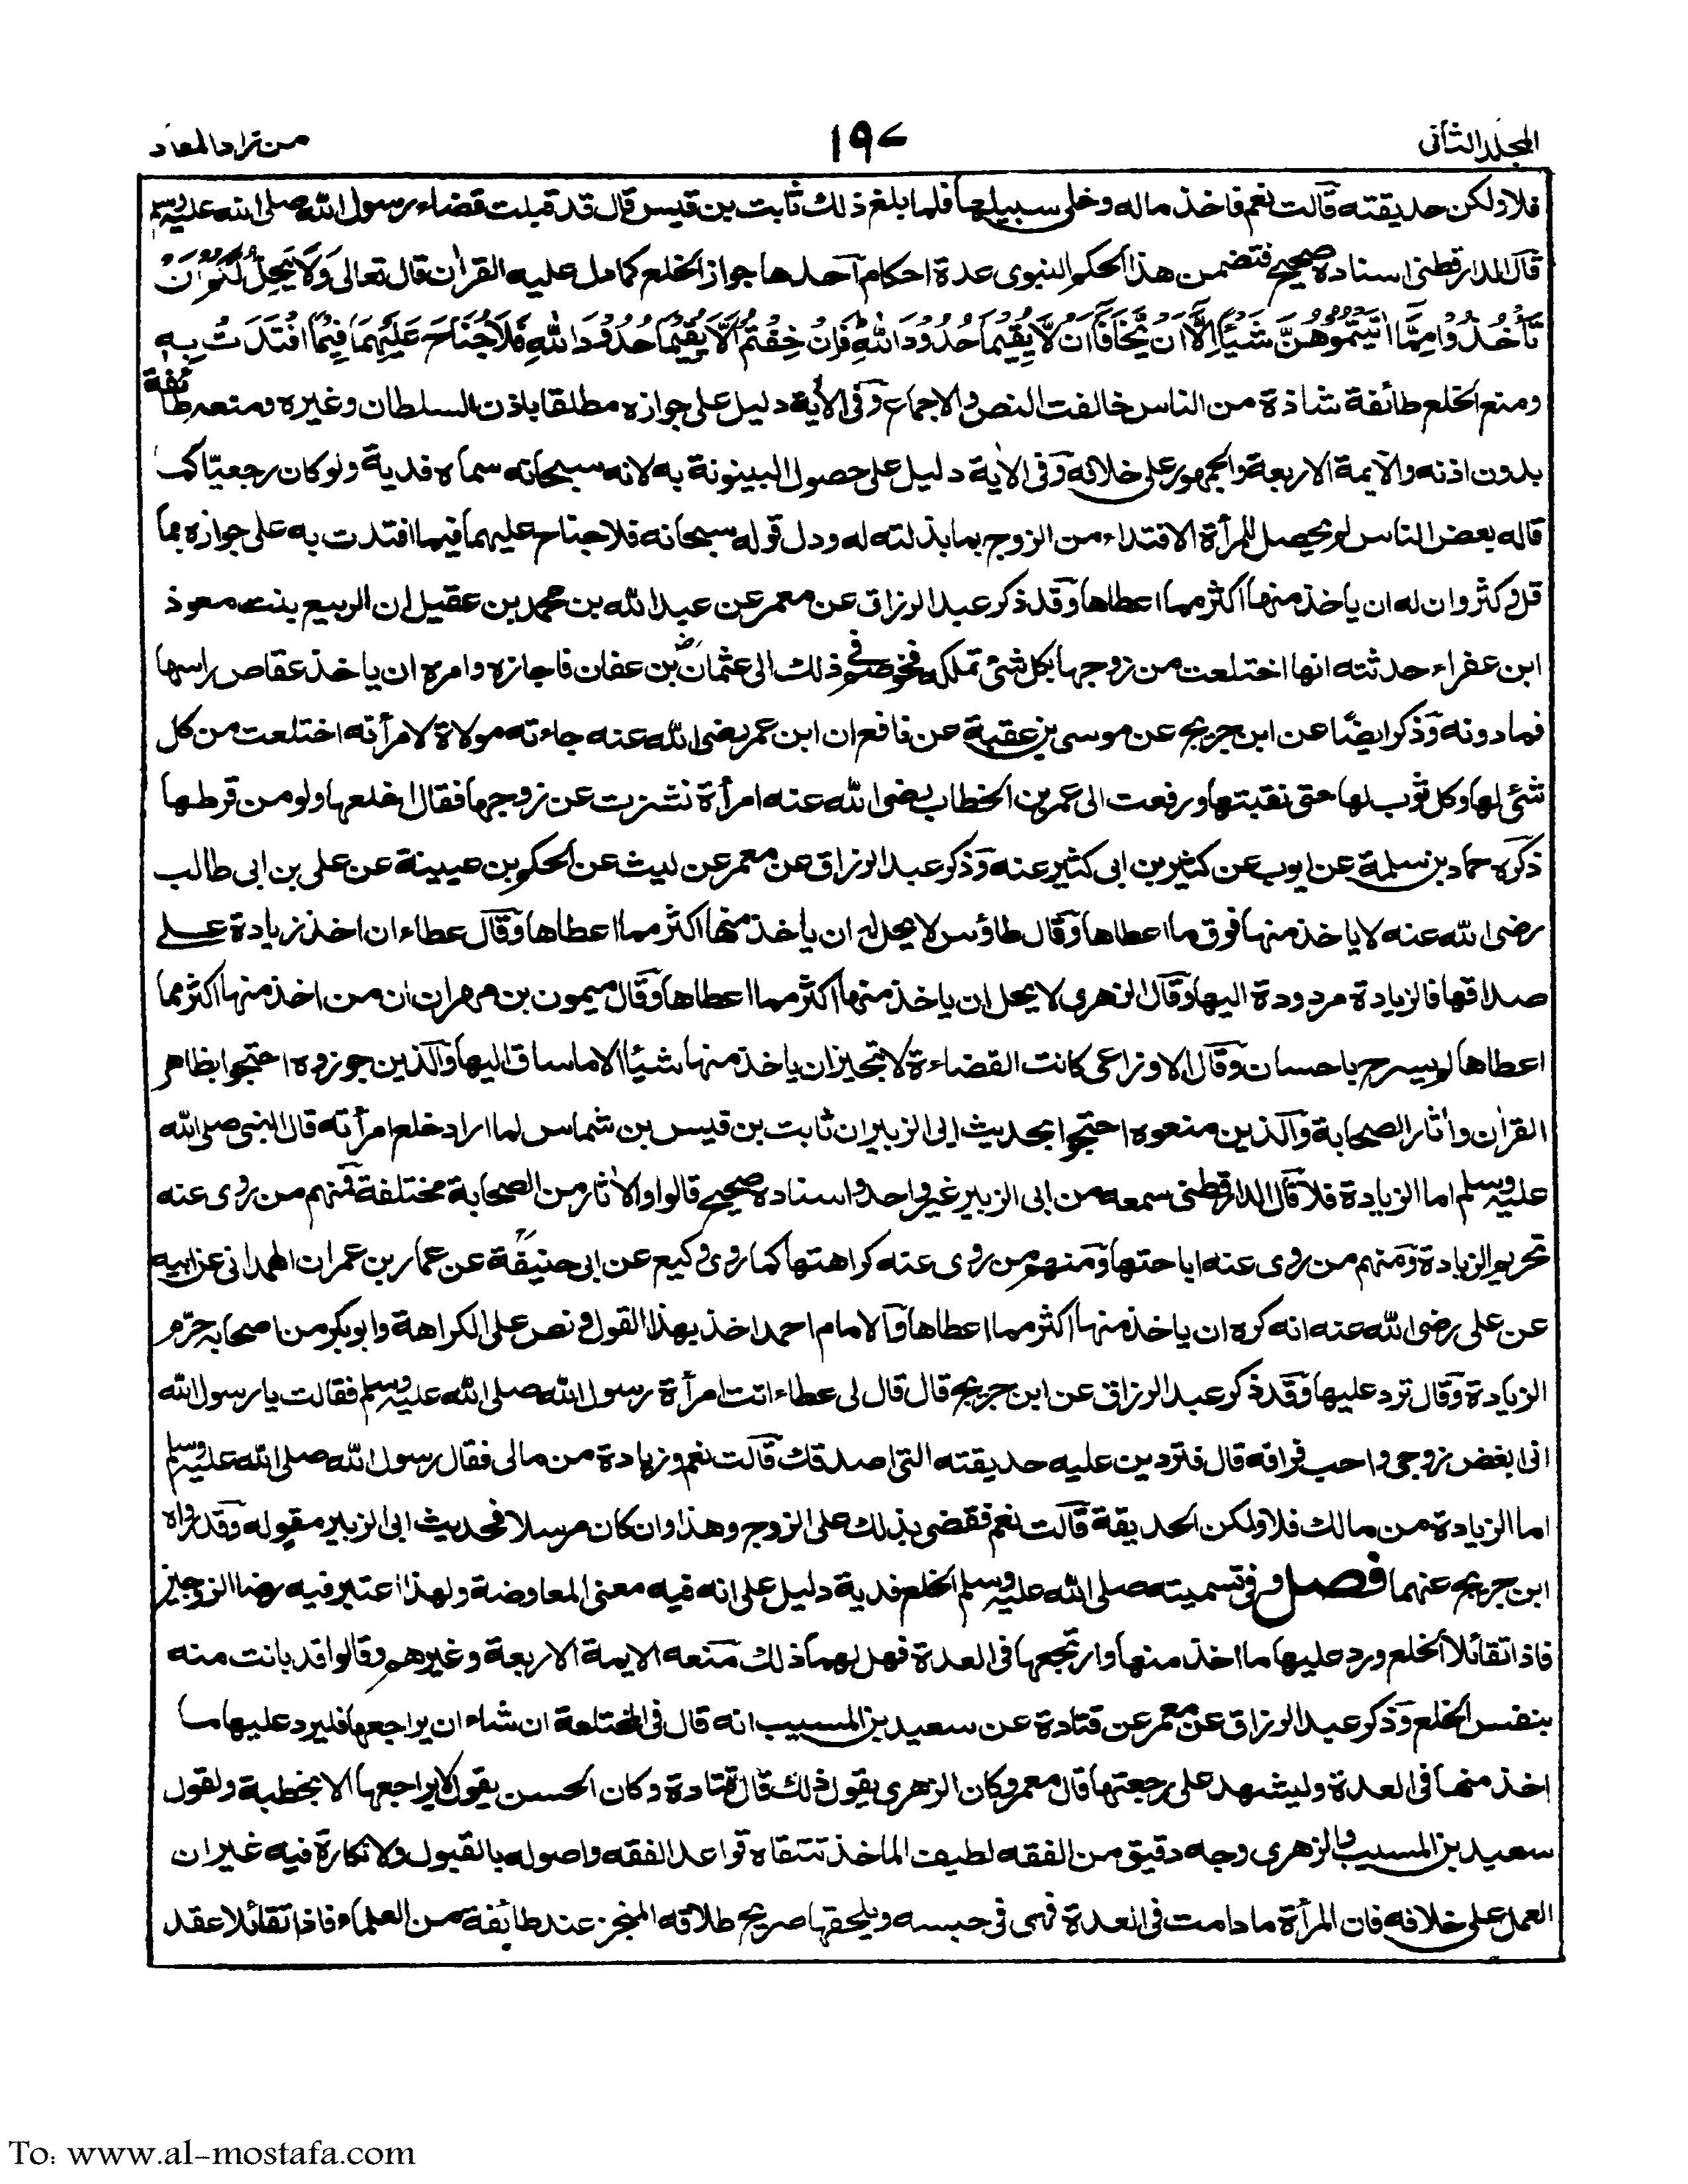 المجلد الثانى
١٩٧
من زاد المعاد
فلا ولكن حديقته قالت نعم فاخذ ماله وخلى سبيلها فلما بلغ ذلك ثابت بن قيس قال قد قبلت قضاء رسول الله صلى الله عليه وسلم
قال الدارقطنى اسناده صحيح فتضمن هذا الحكم النبوى عدة احكام احدها جواز الخلع كما دل عليه القران قال تعالى وَلَا يَحِلُّ لَكُمْ اَنْ
تَأْخُذُوْا مِمَّا اٰتَيْتُمُوْهُنَّ شَيْئًا اِلَّا اَنْ يَّخَافَا اَنْ لَّا يُقِيْمَا حُدُوْدَ اللّٰهِ فَاِنْ خِفْتُمْ اَلَّا يُقِيْمَا حُدُوْدَ اللّٰهِ فَلَا جُنَاحَ عَلَيْهِمَا فِيْمَا افْتَدَتْ بِهٖ
ومنع الخلع طائفة شاذة من الناس خالفت النص والاجماع وفى الأية دليل على جوازه مطلقا باذن السلطان وغيره ومنعه طائفة
بدون اذنه والأيمة الاربعة والجمهور على خلافه وفى الاية دليل على حصول البينونة به لانه سبحانه سماه فدية ولو كان رجعيّا كما
قاله بعض الناس لم يحصل للمرأة الافتداء من الزوج بما بذلته له ودل قوله سبحانه فلا جناح عليهما فيما افتدت به على جوازه بما
قل وكثر وان له ان ياخذ منها اكثر مما اعطاها وقد ذكر عبد الرزاق عن معمر عن عبد الله بن محمد بن عقيل ان الربيع بنت معوذ
ابن عفراء حدثته انها اختلعت من زوجها بكل شئ تملكه فخوصم فى ذلك الى عثمان بن عفان فاجازه وامره ان ياخذ عقاص راسها
فما دونه وذكر ايضًا عن ابن جريج عن موسى بن عقبة عن نافع ان ابن عمر رضى الله عنه جاءته مولاة لامرأته اختلعت من كل
شئ لها وكل ثوب لها حتى نقبتها ورفعت الى عمر بن الخطاب رضى الله عنه امرأة نشزت عن زوجها فقال اخلعها ولو من قرطها
ذكره حماد بن سلمة عن ايوب عن كثير بن ابى كثير عنه وذكر عبد الرزاق عن معمر عن ليث عن الحكم بن عيينة عن على بن ابى طالب
رضى الله عنه لا ياخذ منها فوق ما اعطاها وقال طاؤس لا يحل له ان ياخذ منها اكثر مما اعطاها وقال عطاء ان اخذ زيادة على
صداقها فالزيادة مردودة اليها وقال الزهرى لا يحل ان ياخذ منها اكثر مما اعطاها وقال ميمون بن مهران ان من اخذ منها اكثر مما
اعطاها لم يسرح باحسان وقال الاوزاعى كانت القضاءة لا تجيز ان ياخذ منها شيئا الا ما ساق اليها والذين جوزوه احتجوا بظاهر
القران واثار الصحابة والذين منعوه احتجوا بحديث ابى الزبير ان ثابت بن قيس بن شماس لما اراد خلع امرأته قال النبى صلى الله
عليه وسلم اما الزيادة فلا قال الدارقطنى سمعه من ابى الزبير غير واحد واسناده صحيح قالوا والاثار من الصحابة مختلفة فمنهم من روى عنه
تحريم الزيادة ومنهم من روى عنه اباحتها ومنهم من روى عنه كراهتها كما روى وكيع عن ابى حنيفة عن عمار بن عمران الهمدانى عن ابيه
عن على رضى الله عنه انه كره ان ياخذ منها اكثر مما اعطاها والامام احمد اخذ بهذا القول ونص على الكراهة وابو بكر من اصحابه حرّم
الزيادة وقال ترد عليها وقد ذكر عبد الرزاق عن ابن جريج قال قال لى عطاء اتت امرأة رسول الله صلى الله عليه وسلم فقالت يا رسول الله
انى ابغض زوجى واحب فراقه قال فتردين عليه حديقته التى اصدقك قالت نعم وزيادة من مالى فقال رسول الله صلى الله عليه وسلم
اما الزيادة من مالك فلا ولكن الحديقة قالت نعم فقضى بذلك على الزوج وهذا وان كان مرسلا فحديث ابى الزبير مقوله وقد رواه
ابن جريج عنهما فصل وفى تسميته صلى الله عليه وسلم الخلع فدية دليل على انه فيه معنى المعاوضة ولهذا اعتبر فيه رضا الزوجين
فاذا تقائلا الخلع ورد عليها ما اخذ منها وارتجعها فى العدة فهل لهما ذلك منعه الايمة الاربعة وغيرهم وقالوا قد بانت منه
بنفس الخلع وذكر عبد الرزاق عن معمر عن قتادة عن سعيد بن المسيب انه قال فى المختلعة ان شاء ان يراجعها فليرد عليها ما
اخذ منها فى العدة وليشهد على رجعتها قال معمر وكان الزهرى يقول ذلك قال قتادة وكان الحسن يقول لا يراجعها الا بخطبة ولقول
سعيد بن المسيب والزهرى وجه دقيق من الفقه لطيف الماخذ تتقاه قواعد الفقه واصوله بالقبول ولا نكارة فيه غير ان
العمل على خلافه فان المرأة ما دامت فى العدة فهى فى حبسه ويلحقها صريح طلاقه المنجز عند طائفة من العلماء فاذا تقائلا عقد
To: www.al-mostafa.com